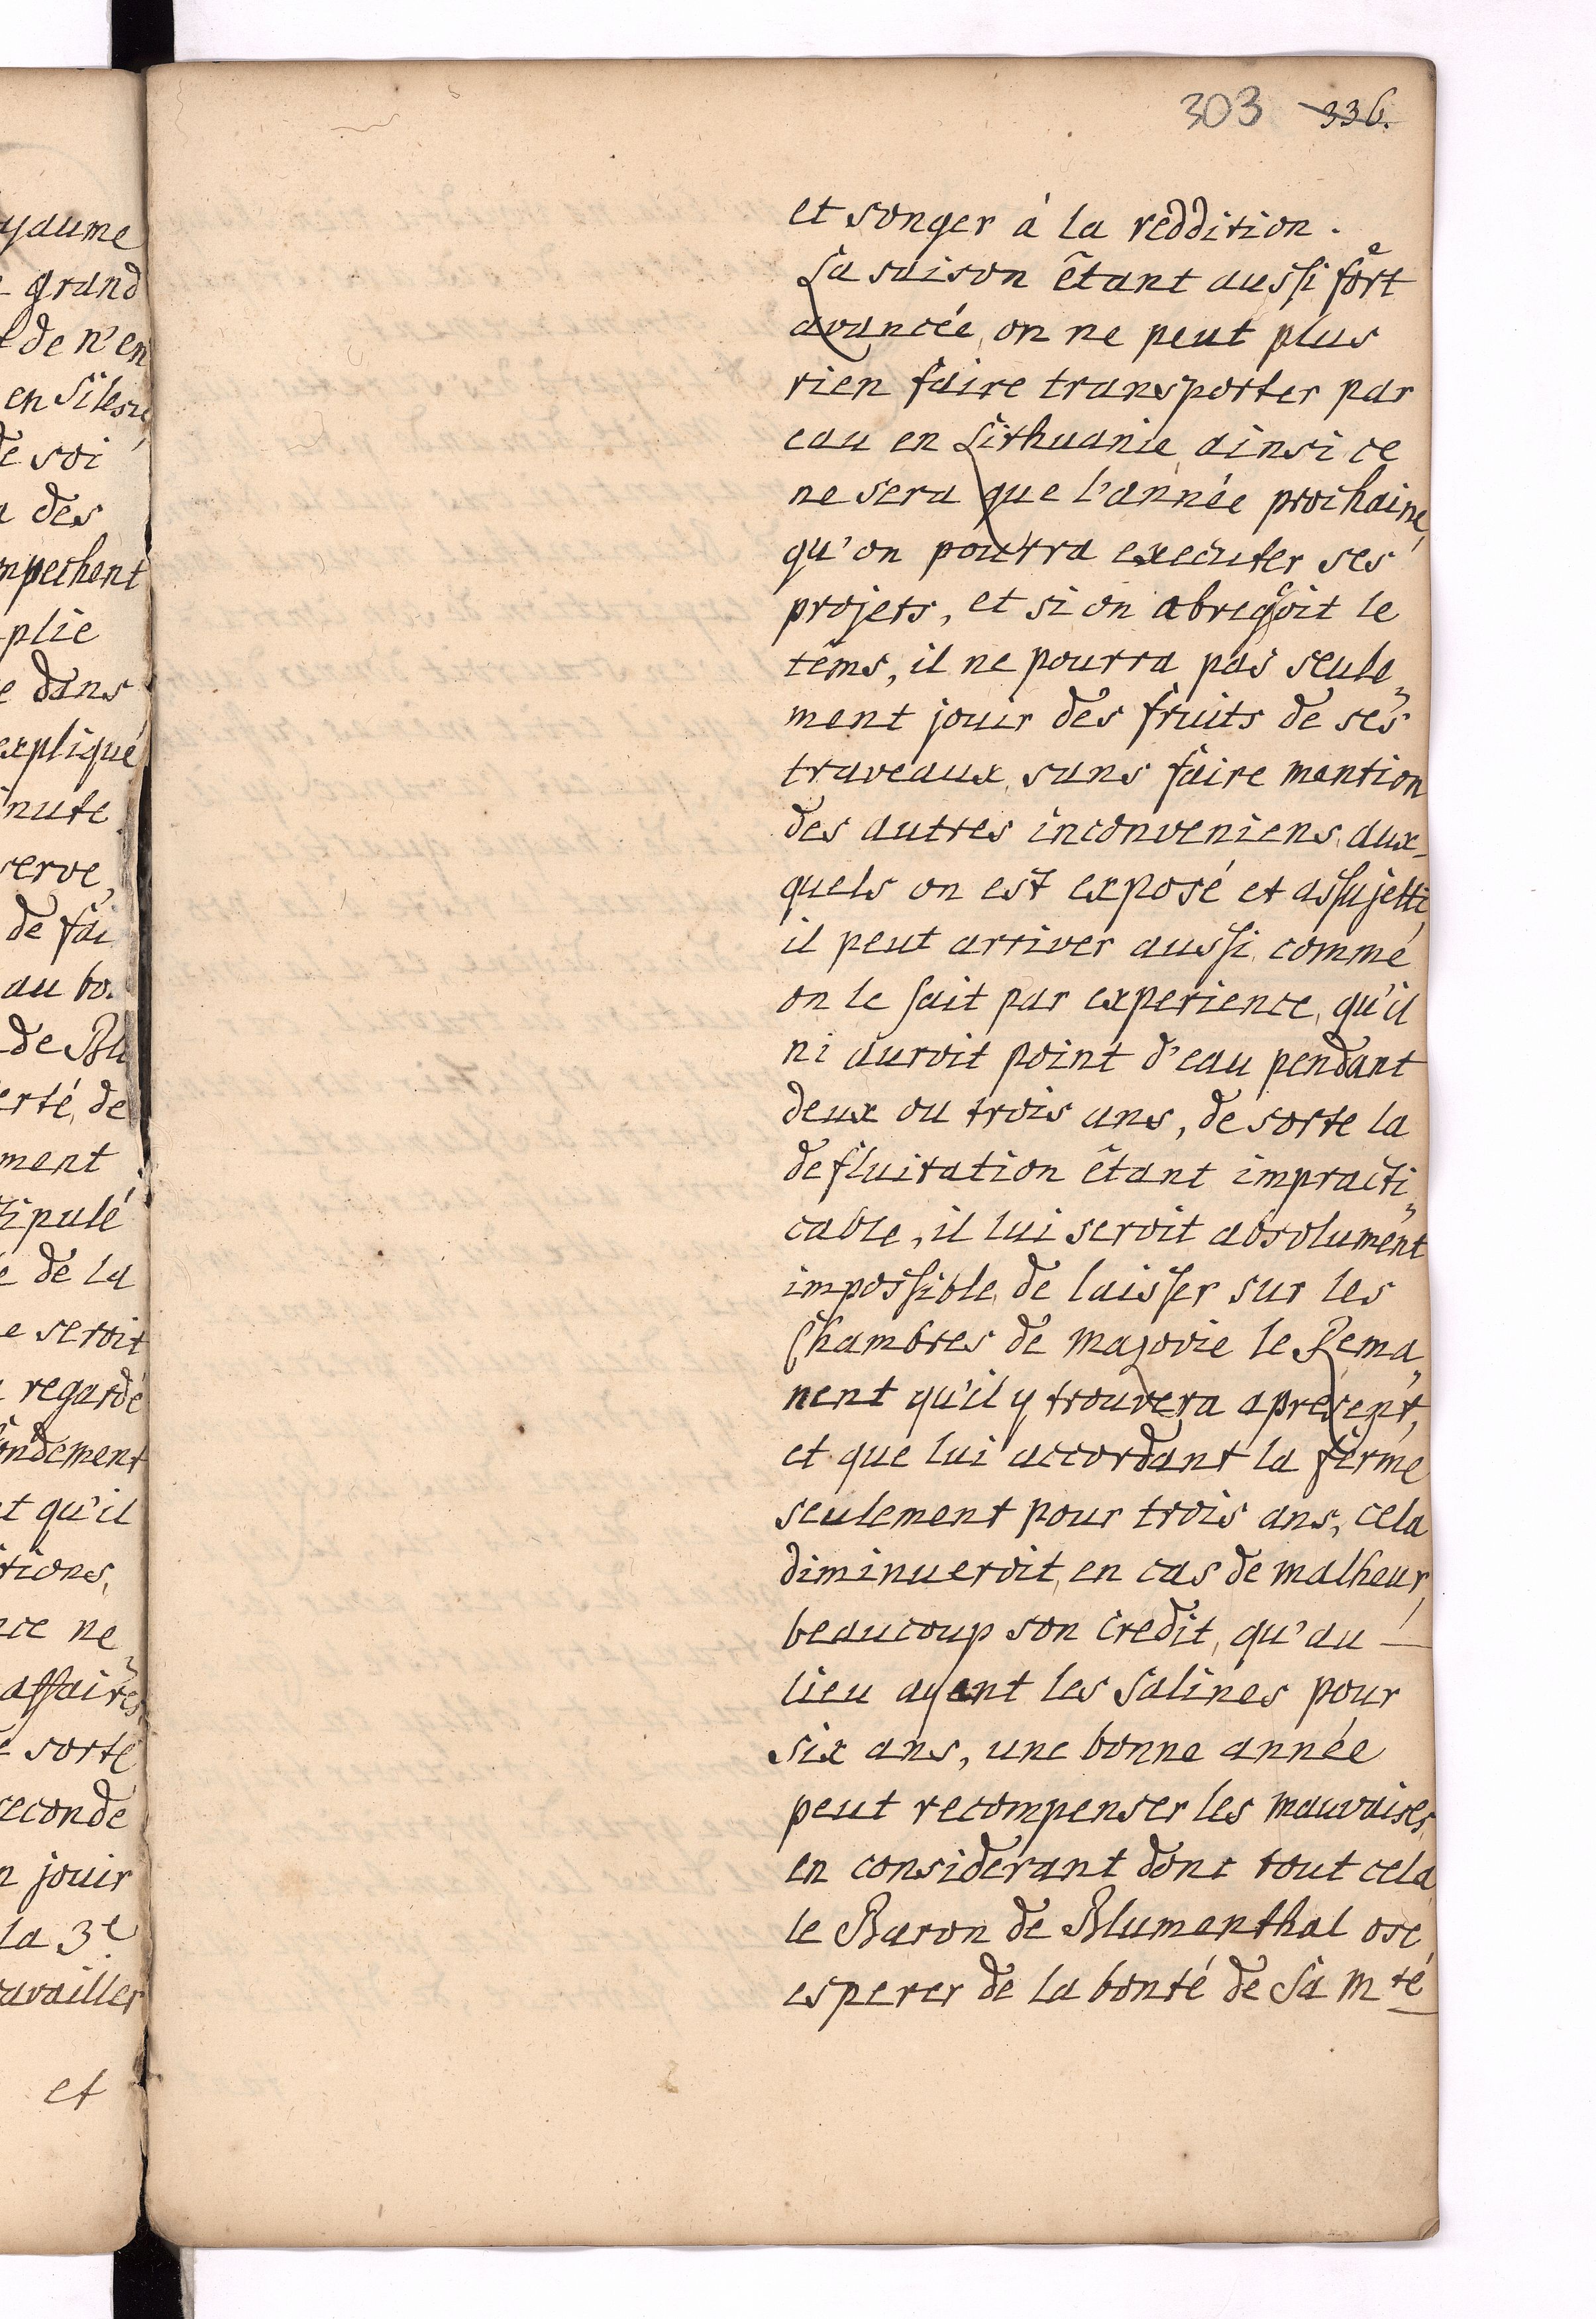 yaume
grand
de n'en
en Silesie
de soi
des
mpechent
plie
dans
expliqué
nute
serve,
de fai
au bo.
de Blu
erté, de
ment
tipulé
de la
e seroit
regardé
ondement
t qu'il
tions,
nce ne
affaires,
sorte
seconde
n jouir
la 3e
ravailler
et
303 336.
et songer à la reddition.
La saison êtant aussi fort
avancée, on ne peut plus
rien faire transporter par
eau en Lithuanie, ainsi ce
ne sera que l'année prochaine,
qu'on pourra executer ses
projets, et si on abregoit le
têms, il ne pourra pas seule„
ment jouir des fruits de ses
traveaux, sans faire mention
des autres inconveniens, aux-
quels on est exposé et assujetti,
il peut arriver aussi, comme
on le sait par experience, qu'il
ni auroit point d'eau pendant
deux ou trois ans, de sorte la
defluitation êtant impracti„
cable, il lui seroit absolument
impossible, de laisser sur les
Chambres de Mazovie le Rema„
nent qu'il y trouvera apresent,
et que lui accordant la ferme
seulement pour trois ans, cela
diminueroit, en cas de malheur,
beaucoup son credit, qu'au —
lieu ayant les Salines pour
six ans, une bonne année
peut recompenser les mauvaises,
en considerant donc tout cela
le Baron de Blumenthal ose
esperer de la bonté de Sa Mté